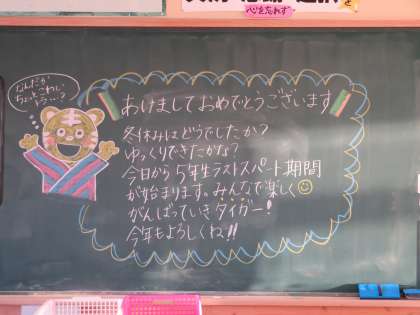 心を忘れず
なんだか
ちょっとこわい
トラ…？
あけましておめでとうございます
冬休みはどうでしたか？
ゆっくりできたかな？
今日から5年生ラストスパート期間
が始まります。みんなで楽しく
がんばっていきタイガー！
今年もよろしくね!!